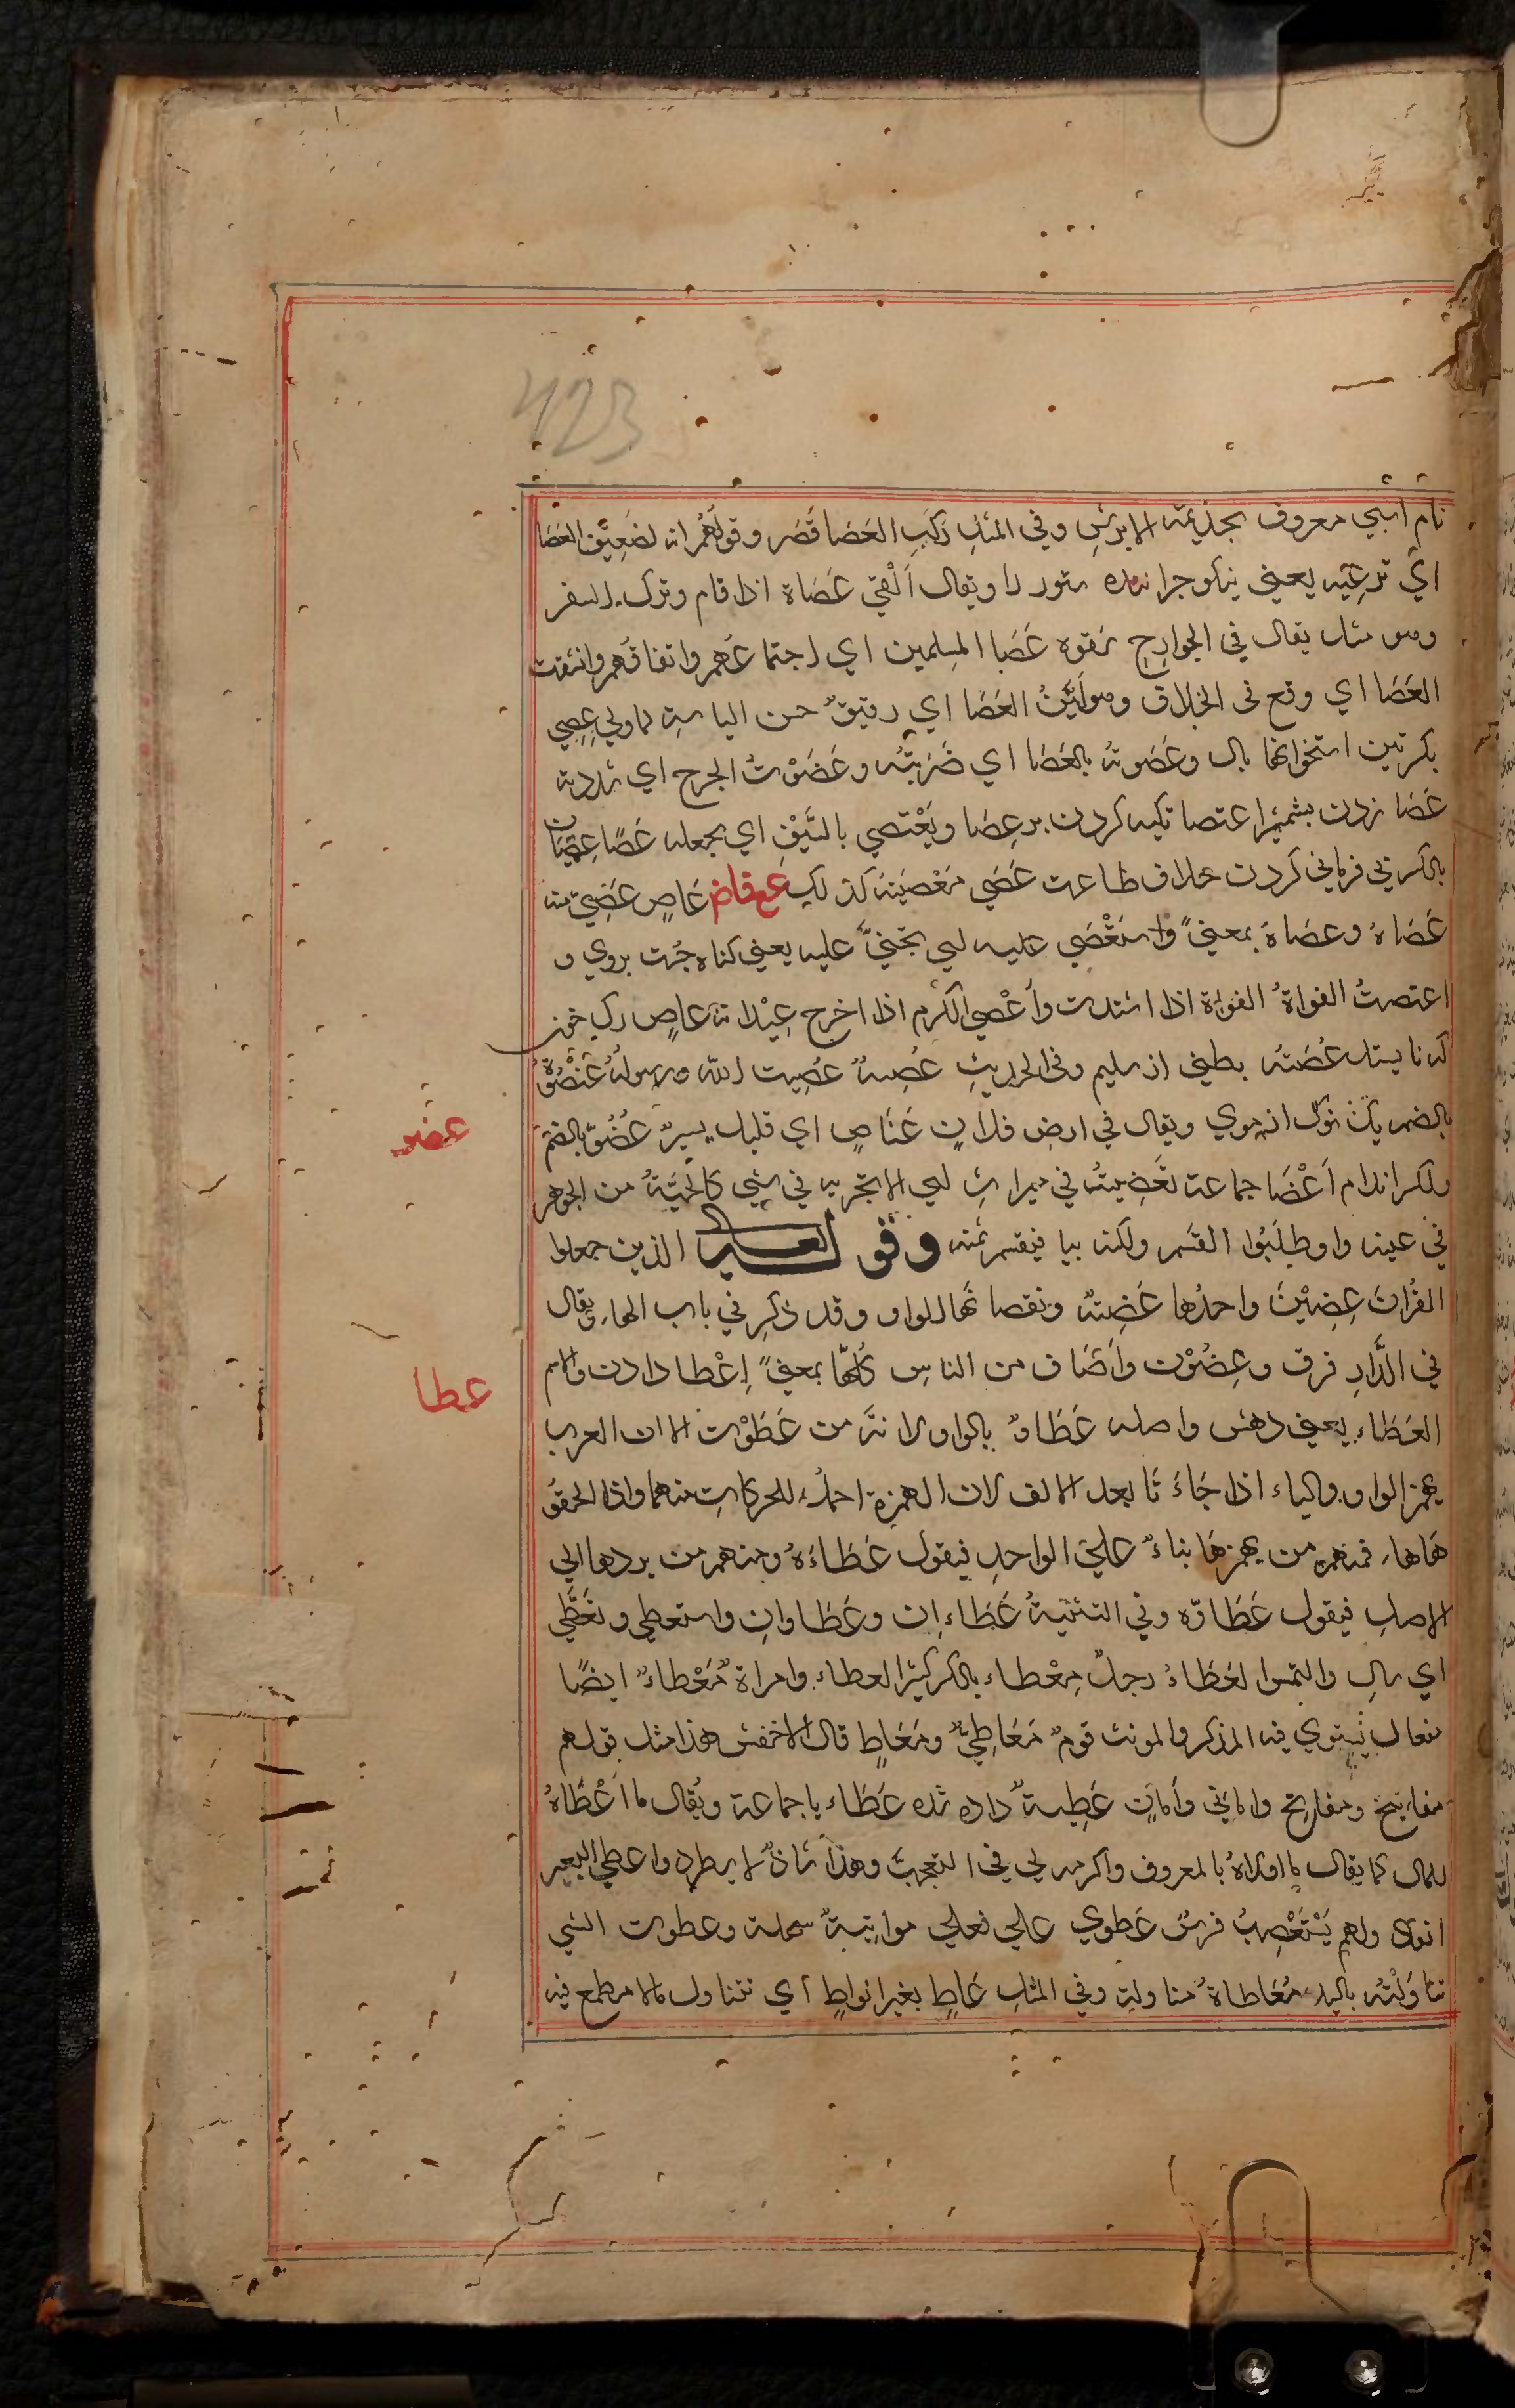 423
نام اسپي معروف بجذيمة الابرش وفي المثل ركب العَصَا قَصَر وقولهُمُ انه لضعيف العَصَا
اي ترعيه يعني نيكو جرا ستور را ويقال اَلْقي عَصَاة اذا قام وترك السفر
ومو مثل يقال في الجوارج شقوا عَصَا المسلمين اي اجتماعهم واتفاقهم وانشقت
العَصَا اي وقع في الخلاف وهو لَيّنُ العَصَا اي رقيقٌ حسن السياسة لما ولي عِصِي
بكرتين استخوانها بال وعَصَوته بالعَصَا اي ضَرَبتُه وعَصَوْتُ الجرح اي شددته
عَصَا زدن بشمشير اعتصا تكيه كردن بر عصا ويَعْتصي بالسَّيْفِ اي يجعله عَصًا عِصْيَان
بالكسر بي فرماني كردن خلاف طاعت عَصَي مَعْصِيَة كذلك ع قاض عَاصٍ عَصِيّ منه
عَصَاهُ وعصَاهُ بمعنيً واستَعْصَي عليه اي تجنيَّ عليه يعني كناه جُست بروي و
اعتصتُ النواةُ اذا اشتدت وأعْصي الكَرْم اذا اخرج عِيْدانه عاصٍ رك خون
كه نايستد عُصَيّه بطني از سليم وفي الحديث عُصيةٌ عُصِيت الله ورسوله عُنْصُوَةٌ
بالضمر يك نوك از موي ويقال في ارض فلانٍ عَنَاصٍ اي قليل يسيرٌ عُضُوٌ بالضم
عضو
ولكسر اندام اَعْضَا جماعة تَعْضِيةُ في ميراث اي الا تجزيه في شيء كالحبّةُ من الجوهر
في عينه واو طلَبُوا القسَم ولكن بيا فيقسم ثمنه وقوله الذين جعلوا
القرانَ عِضِيْنَ واحدُها عَضِةٌ ونقصا نها الواو وقد ذكِر في باب الهاء ويقال
في الدَّارِ فرق وعِضُوْن واَصْنَاف من الناس كلها بمعنيً اِعْطا دادن والاسم
عطا
العَطَاء يعني دهش واصله عَطَاوٌ بالواو لا نه من عَطَوْت الا ان العرب
يهمز الواو والياء اذا جَاءَتَا بعد الالف لان الهمزة احمل للحركات منهما واذا الحقو
هَا هاء فمنهم من يهمزها بناءً علي الواحد فيقول عَطَاءَةٌ ومنهم من يردها الي
الاصل فيقول عَطَاوَه وفي التثنيةُ عَطَاءان وعَطَاوانِ واستعطي وتعَطَّي
اي سال والتمس العَطَاءُ رجلٌ مِعْطاء بالكسر كثير العطاء وامراةٌ مَعْطاءٌ ايضًا
مفعال يستوي فيه المذكر والمونث قومٌ مَعَاطِيّ ومَعَاطٍ قال الاخفش هذا مثل قولهم
مفاتيح ومفاتح واماني وأمانٍ عَطِيةٌ داده شده عَطَاء يا جماعة ويُقال ما اَعْطَاهُ
للمال كما يقال ما اولاهُ بالمعروف واكرمه لي في التعجب وهذا شاذٌ لا يطرد واعطي البعير
انقاد ولم يَسْتَعْصِبُ قوسٌ عَطوي علي فعلي مواتيةٌ سهلة وعطوت الشي
تناوَلْتُه باليد مُعَاطاةٌ مناولة وفي المثل عَاطٍ بغير انواطٍ اي تتناول مالا مطمع فيه